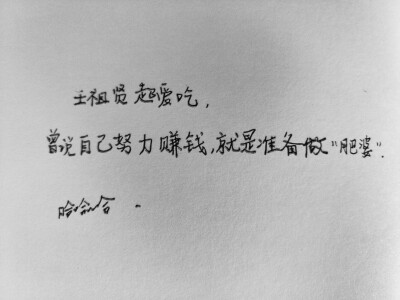 王祖贤超爱吃，
曾说自己努力赚钱，就是准备做“肥婆”.
哈哈哈 -